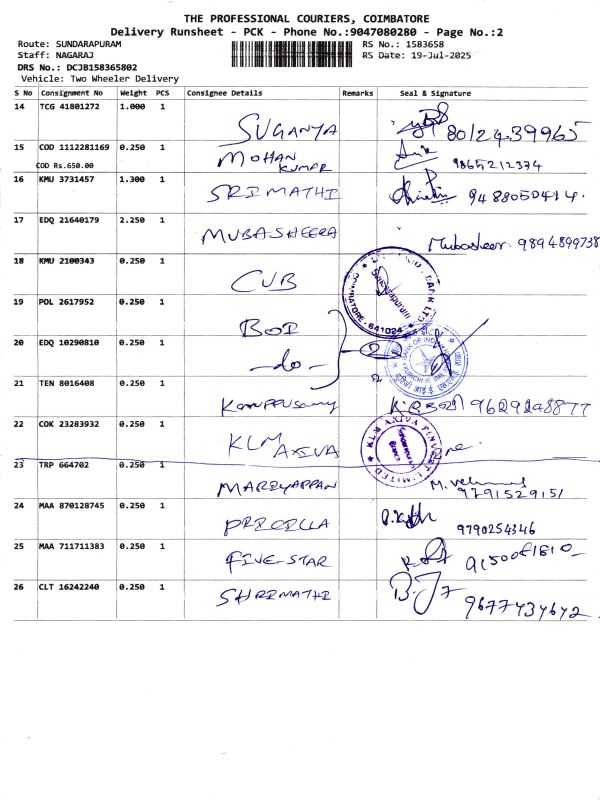 THE PROFESSIONAL COURIERS, COIMBATORE
Delivery Runsheet - PCK - Phone No.:9047080280 - Page No.:2
Route: SUNDARAPURAM RS No.: 1583658
Staff: NAGARAJ RS Date: 19-Jul-2025
DRS No.: DCJB158365802
Vehicle: Two Wheeler Delivery
S No Consignment No Weight PCS Consignee Details Remarks Seal & Signature
14 TCG 41801272 1.000 1 SUGANYA 8012439965
15 COD 1112281169 0.250 1 MOHAN KUMAR 9865212374
COD Rs.650.00
16 KMU 3731457 1.300 1 SRIMATHI 9488050414
17 EDQ 21640179 2.250 1 MUBASHEERA Mubasheer. 9894899738
18 KMU 2100343 0.250 1 CUB
19 POL 2617952 0.250 1 BOI
20 EDQ 10290810 0.250 1 -do- 2
21 TEN 8016408 0.250 1 9629298877
22 COK 23283932 0.250 1 KLM AXIVA
23 TRP 664702 0.250 1 MAREYAPPAN 9791529151
24 MAA 870128745 0.250 1 PRECILLA 9790254346
25 MAA 711711383 0.250 1 FIVE-STAR
26 CLT 16242240 0.250 1 SHRIMATHI 9677437642